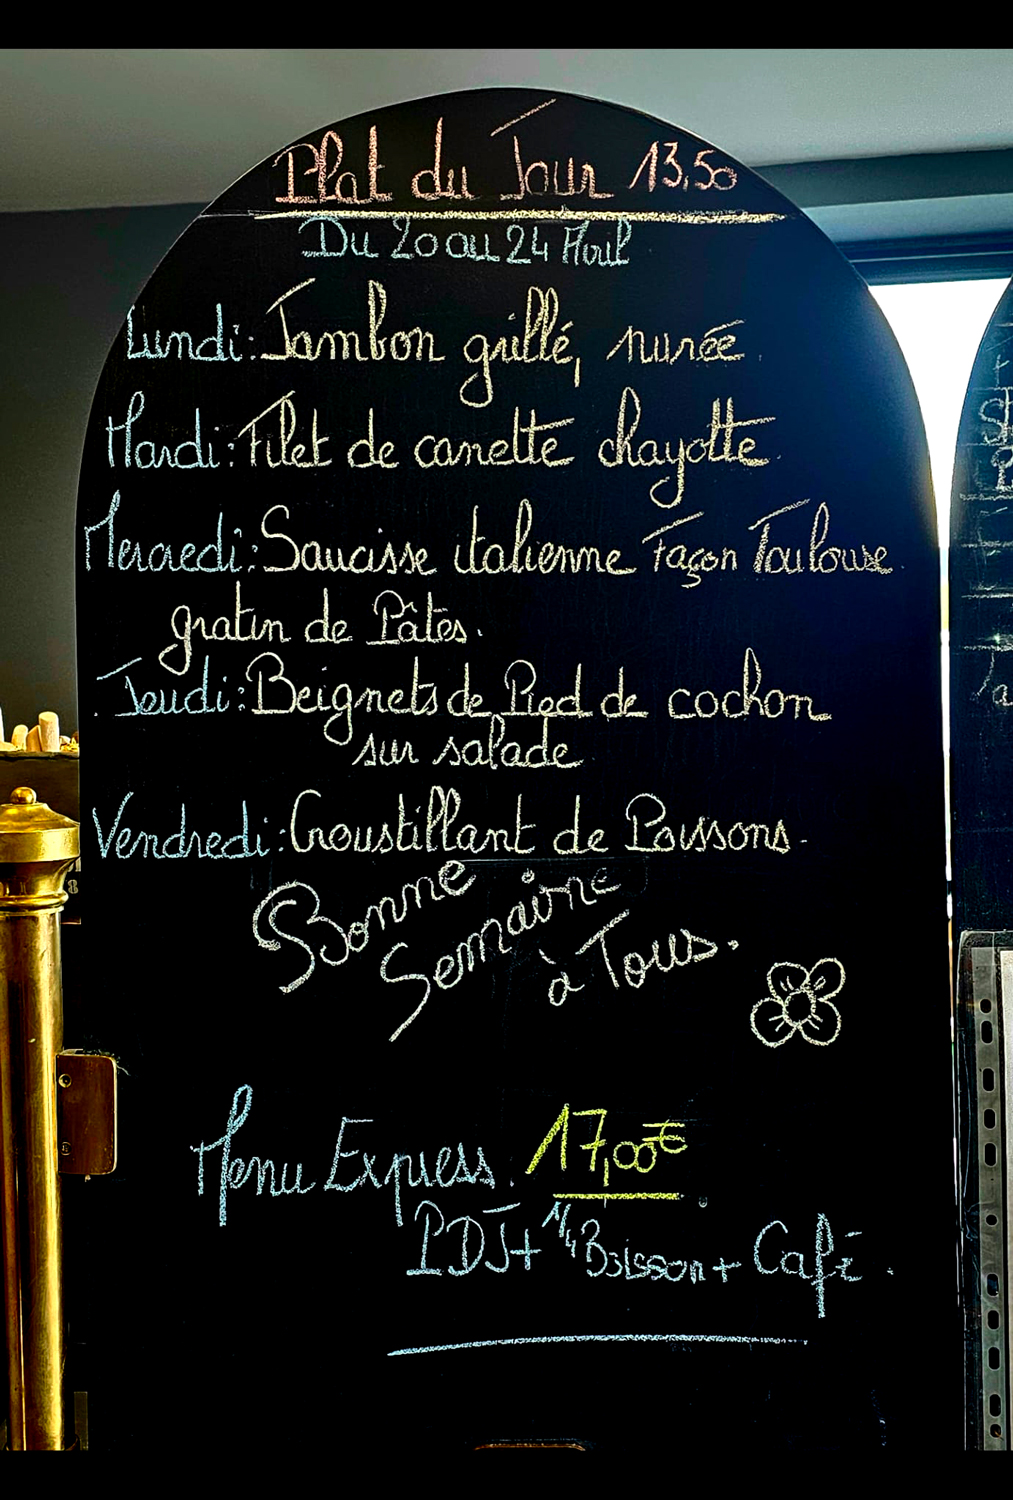 Plat du Jour 13,50
Du 20 au 24 Avril
Lundi: Jambon grillé, purée.
Mardi: Filet de canette chayotte.
Mercredi: Saucisse italienne Façon Toulouse.
gratin de Pâtes.
Jeudi: Beignets de Pied de cochon
sur salade
Vendredi: Croustillant de Poissons.
Bonne
Semaine
à Tous.
Menu Express. 17,00€
PDJ+ Boisson + Café.